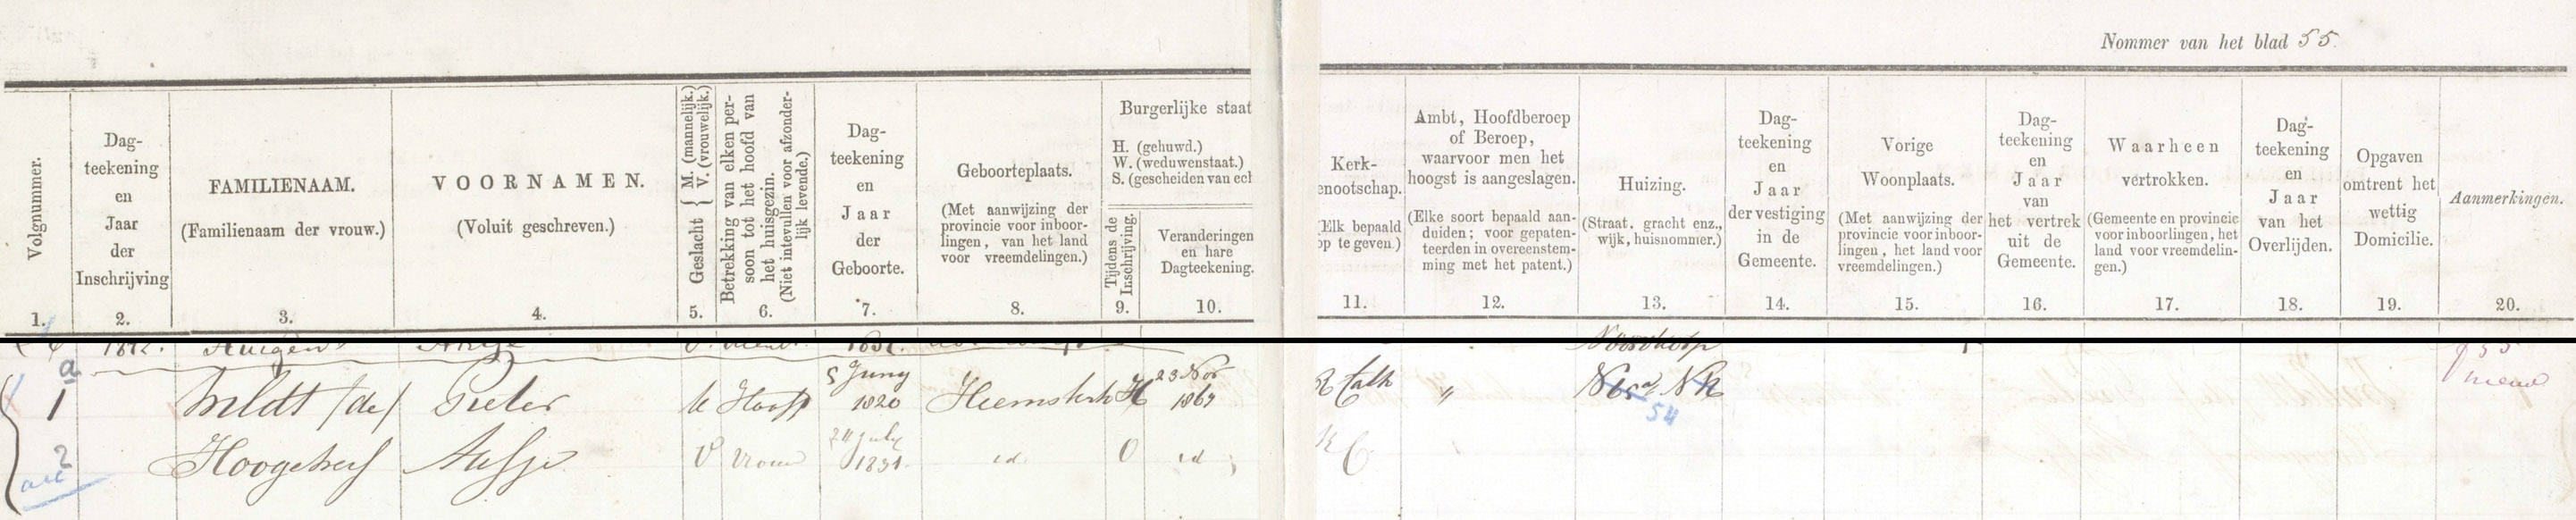 Nommer van het blad 55.
Volgnummer.
Dag-
teekening
en
Jaar
der
Inschrijving
FAMILIENAAM.
(Familienaam der vrouw.)
VOORNAMEN.
(Voluit geschreven.)
Geslacht { M. (mannelijk.)
V. (vrouwelijk.)
Betrekking van elken per-
soon tot het hoofd van
het huisgezin.
(Niet intevullen voor afzonder-
lijk levende.)
Dag-
teekening
en
Jaar
der
Geboorte.
Geboorteplaats.
(Met aanwijzing der
provincie voor inboor-
lingen, van het land
voor vreemdelingen.)
Burgerlijke staat
H. (gehuwd.)
W. (weduwenstaat.)
S. (gescheiden van ech
Tijdens de
Inschrijving.
Veranderingen
en hare
Dagteekening.
Kerk-
enootschap.
(Elk bepaald
op te geven.)
Ambt, Hoofdberoep
of Beroep,
waarvoor men het
hoogst is aangeslagen.
(Elke soort bepaald aan-
duiden; voor gepaten-
teerden in overeenstem-
ming met het patent.)
Huizing.
(Straat, gracht enz.,
wijk, huisnommer.)
Dag-
teekening
en
Jaar
der vestiging
in de
Gemeente.
Vorige
Woonplaats.
(Met aanwijzing der
provincie voor inboor-
lingen, het land voor
vreemdelingen.)
Dag-
teekening
en
Jaar
van
het vertrek
uit de
Gemeente.
Waarheen
vertrokken.
(Gemeente en provincie
voor inboorlingen, het
land voor vreemdelin-
gen.)
Dag-
teekening
en
Jaar
van het
Overlijden.
Opgaven
omtrent het
wettig
Domicilie.
Aanmerkingen.
1. 2. 3. 4. 5. 6. 7. 8. 9. 10. 11. 12. 13. 14. 15. 16. 17. 18. 19. 20.
1872. Huigens Antje V.
Noorddorp
a
1 Weldt (de) Pieter M Hoofd 5 Juny 1820 Heemskerk H 23 Nov 1869 R Cath "
54
2 Hoogeherf Aafje V Vrouw 24 July 1831. id. O id; R C